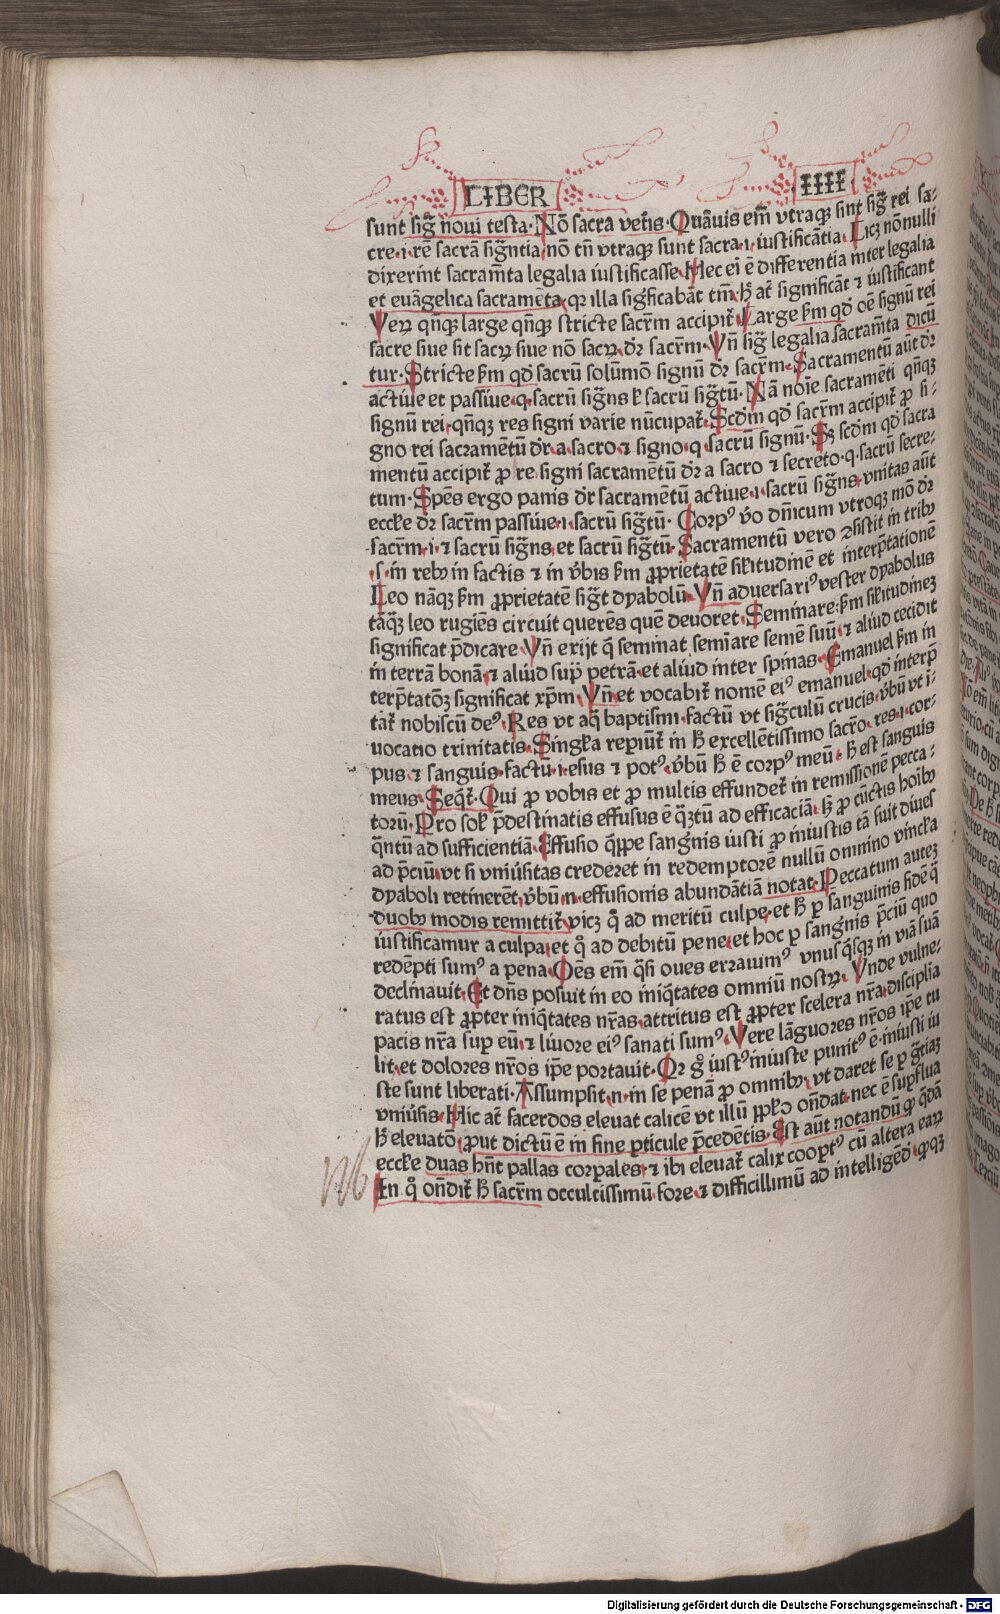 LIBER IIII
sunt sig̃ noui testa. Nõ sacra vet̃is. Quãuis em̃ vtraqꝫ sint sig̃ rei sa-
cre .i. rẽ sacrã sig̃ntia, nõ tñ vtraqꝫ sunt sacra .i. iustificãtia. Licꝫ nõnulli
dixerint sacram̃ta legalia iustificasse. Hec ei ẽ differentia inter legalia
et euãgelica sacramẽta, qꝛ illa sigficabãt tm̃. h̃ at̃ significãt ⁊ iustificant
Veꝝ qñqꝫ large qñqꝫ stricte sacr̃m accipit̃. Large s̃m qd̃ oẽ signũ rei
sacre siue sit sacꝝ siue nõ sacꝝ, dꝛ sacr̃m. Vñ sig̃ legalia sacram̃ta dicũ
tur. Stricte s̃m qd̃ sacrũ solũmõ signũ dꝛ sacr̃m. Sacramentũ aũt dꝛ
actiue et passiue. q. sacrũ sig̃ns ł sacrũ sig̃tũ. Nã noĩe sacramẽti qñqꝫ
signũ rei, qñqꝫ res signi varie nũcupat̃. Scdm̃ qd̃ sacr̃m accipit̃ ꝓ si-
gno rei sacramẽtũ dꝛ. a. sacro ⁊ signo. q. sacrũ signũ. Sꝫ scdm̃ qd̃ sacra
mentũ accipit̃ ꝓ re signi sacramẽtũ dꝛ a sacro ⁊ secreto. q. sacrũ secre-
tum. Spẽs ergo panis dꝛ sacramẽtũ actiue .i. sacrũ sig̃ns, vnitas aũt
eccłe dꝛ sacr̃m passiue .i. sacrũ sig̃tũ. Corpꝰ ṽo dñicum vtroqꝫ mõ dꝛ
sacr̃m .i. ⁊ sacrũ sig̃ns, et sacrũ sig̃tũ. Sacramentũ vero ꝯsistit in tribꝰ
.s. in rebꝰ in factis ⁊ in ṽbis s̃m ꝓprietatẽ siłitudinẽ et interp̃tationẽ
Leo nãqꝫ s̃m ꝓprietatẽ sig̃t dyabolũ. Vñ aduersariꝰ vester dyabolus
tãqꝫ leo rugiẽs circuit querẽs quẽ deuoret. Seminare: s̃m siłitudinẽ
significat p̃dicare. Vñ exijt q̃ seminat seminare semẽ suũ, ⁊ aliud cecidit
in terrã bonã, ⁊ aliud sup̃ petrã, et aliud inter spinas. Emanuel s̃m in
terp̃tatõꝫ significat xp̃m. Vñ et vocabit̃ nomẽ eiꝰ emanuel. qd̃ interp̃
tat̃ nobiscũ deꝰ. Res vt aq̃ baptismi. factũ vt sig̃culũ crucis. ṽbũ vt i-
uocatio trinitatis. Singła repiũt̃ in h̃ excellẽtissimo sacr̃o. res .i. cor-
pus ⁊ sanguis. factũ .i. esus ⁊ potꝰ. ṽbũ h̃ ẽ corpꝰ meũ. h̃ est sanguis
meus. Seq̃t̃. Qui ꝓ vobis et ꝓ multis effundet̃ in remissionẽ pecca-
torũ. Pro soł p̃destinatis effusus ẽ q̃ꝫtũ ad efficaciã. h̃ ꝓ cũctis hoĩbꝰ
q̃ntũ ad sufficientiã. Effusio q̃ppe sanguinis iusti ꝓ iniustis tã fuit diues
ad p̃ciũ, vt si vniũsitas crederet in redemptorẽ nullũ omnino vincła
dyaboli retinerẽt. ṽbũ .n. effusionis abundãtiã notat. Peccatum auteꝫ
duobꝰ modis remittit̃, vicꝫ q̊ ad meritũ culpe, et h̃ ꝑ sanguinis fidẽ q̃
iustificamur a culpa, et q̊ ad debitũ pene, et hoc ꝑ sanguinis p̃ciũ quo
redẽpti sumꝰ a pena. Oẽs em̃ q̃si oues errauimꝰ vnusq̃sqꝫ in viã suã
declinauit. Et dñs posuit in eo iniq̃tates omniũ nostrꝝ. Vnde vulne-
ratus est ꝓpter iniq̃tates nr̃as, attritus est ꝓpter scelera nr̃a. disciplia
pacis nr̃a sup̃ eũ, ⁊ liuore eiꝰ sanati sumꝰ. Vere lãguores nr̃os ip̃e tu
lit, et dolores nr̃os ip̃e portauit. Qꝛ g̊ iustꝰ iniuste punitꝰ ẽ. iniusti iu
ste sunt liberati. Assumpsit .n. in se penã ꝓ omnibꝰ, vt daret se ꝑ gr̃tiaꝫ
vniũsis. Hic at̃ sacerdos eleuat calicẽ vt illũ pp̃ło oñdat, nec ẽ supflua
h̃ eleuatõ, ꝓut dictũ ẽ in fine ꝑticule p̃cedẽtis. Est aũt notandũ ꝙ q̃dã
eccłe duas hñt pallas corpales, ⁊ ibi eleuat̃ calix coop̃tꝰ cũ altera eaꝝ
In q̊ oñdit̃ h̃ sacr̃m occultissimũ fore, ⁊ difficillimũ ad intelligẽd̃ ꝓqꝫ
Nb
Digitalisierung gefördert durch die Deutsche Forschungsgemeinschaft - DFG